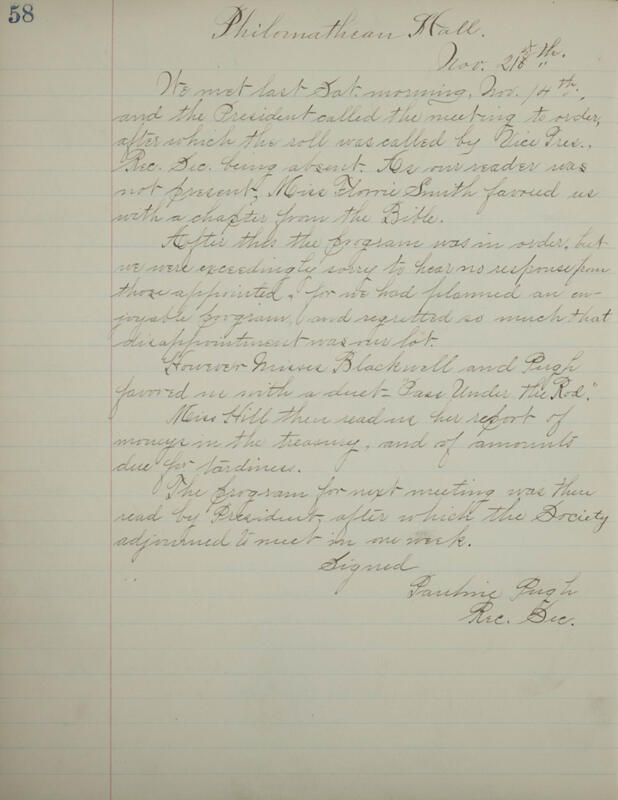 58
Philomathean Hall.
Nov. 21st
We met last Sat. morning, Nov. 14th.,
and the President called the meeting to order,
after which the roll was called by Vice Pres.,
Rec. Sec. being absent. As our reader was
not present, Miss Florrie Smith favored us
with a chapter from the Bible.
After this the program was in order, but
we were exceedingly sorry to hear no response from
those appointed, for we had planned an en-
joyable program, and regretted so much that
disappointment was our lot.
However Misses Blackwell and Pugh
favored us with a duet - "Pass Under the Rod."
Miss Hill then read us her report of
moneys in the treasury, and of amounts
due for tardiness.
The program for next meeting was then
read by President, after which the Society
adjourned to meet in one week.
Signed
Pauline Pugh
Rec. Sec.